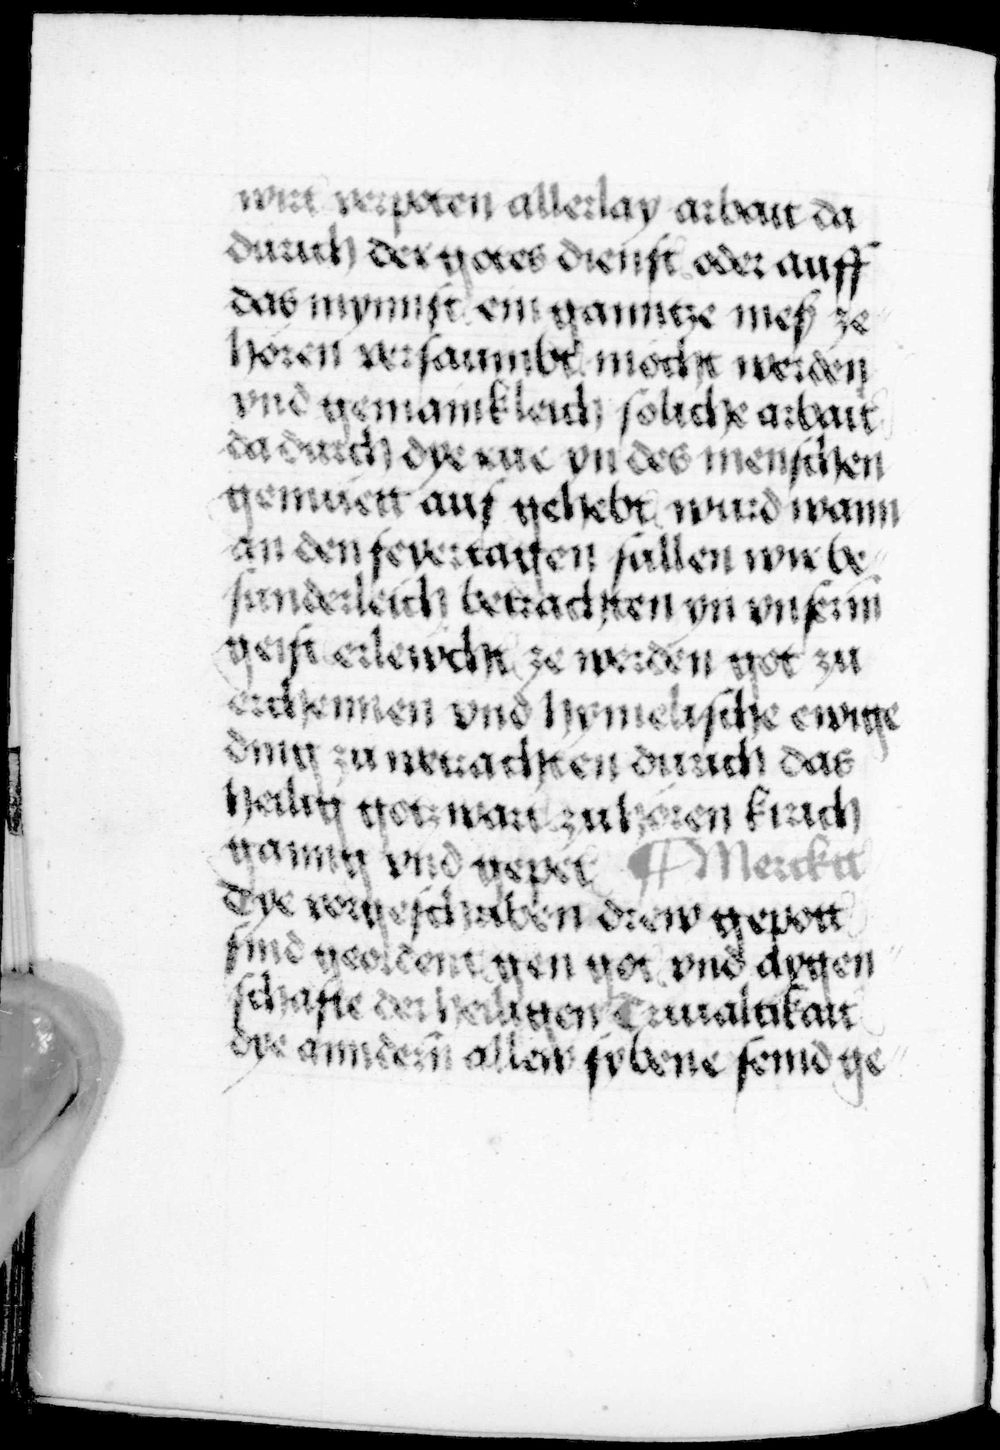 wirt verpoten allerlay arbait da
durich der gotes dienst oder auff
das mynnst ein ganntze mess ze
hören versaumbt möcht werden
vnd gemainkleich soliche arbait
da durch dye rue yn des menschen
gemuett auf gehebt wurd wann
an den feyertagen sullen wir be⸗
sunderleich betrachten yn vnserm
geist erlewcht ze werden got zu
erchennen vnd hymelische ewige
ding zu betrachten durich das
heilig gotz wart zu hören kirich
ganng vnd gepet ¶ Merckt
Dye vorgeschriben drew gepott
sind geordent gen got vnd aygen⸗
schafte der heiligen Triualtikait
dye anndern allew sybene seind ge⸗